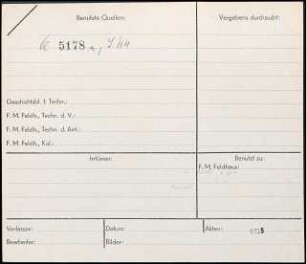 Benutzte Quellen:
Vergebens durchsucht:
5178
Geschichtsbl. f. Techn.:
F. M. Feldh., Techn. d. V.:
F. M. Feldh., Techn. d. Ant.:
F. M. Feldh., Kal.:
Irrtümer:
Benutzt zu:
F. M. Feldhaus:
Verfasser:
Datum:
Akten:
Bearbeiter:
Bilder: